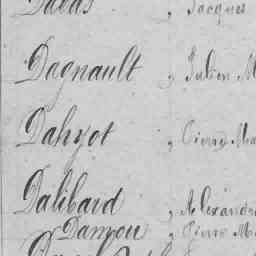 Dabas, Jacques
Dagnault, Julien M
Dahyot, Pierre Ma
Dalibard, Alexandr
Damou, Pierre M